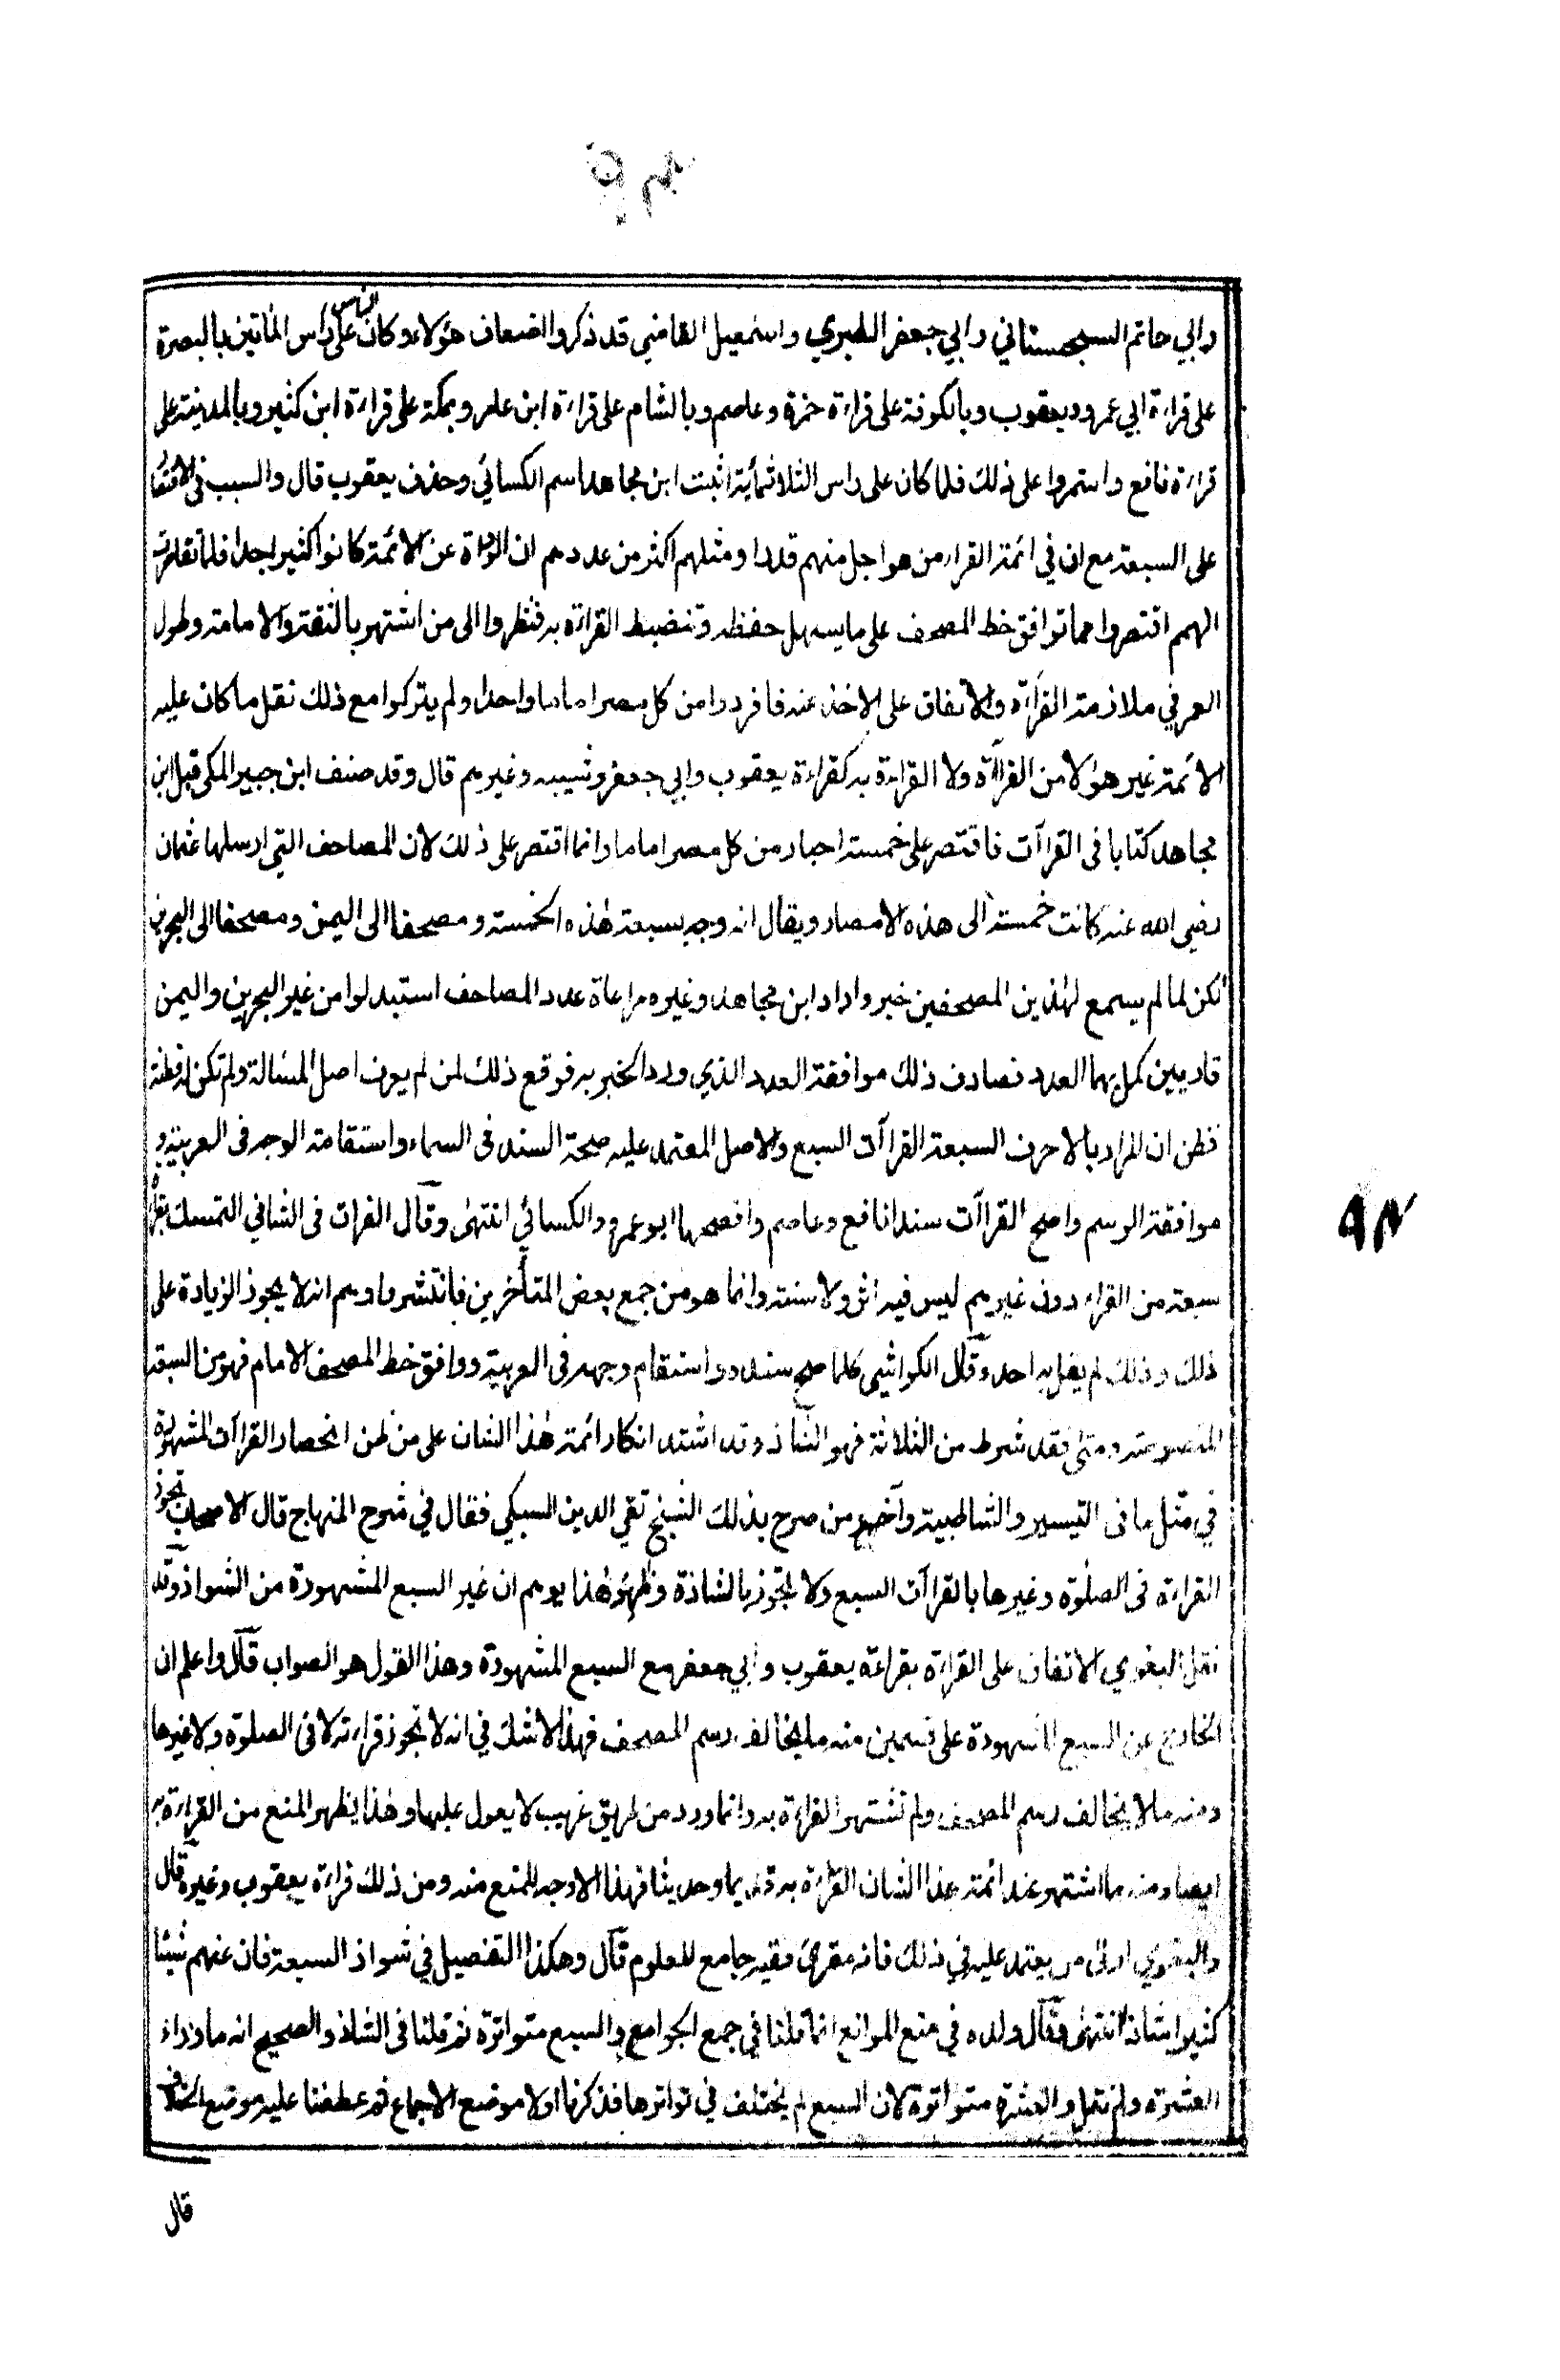 وابي حاتم السجستاني وابي جعفر الطبري واسمعيل القاضي قد ذكروا اضعاف هؤلاء وكان الناس على راس المأتين بالبصرة
على قراءة ابي عمرو ويعقوب وبالكوفة على قراءة حمزة وعاصم وبالشام على قراءة ابن عامر وبمكة على قراءة ابن كثير وبالمدينة على
قراءة نافع واستمروا على ذلك فلما كان على راس الثلاثمأية اثبت ابن مجاهد اسم الكسائي وحذف يعقوب قال والسبب في الاقتصار
على السبعة مع ان في ائمة القراء من هو اجل منهم قدرا ومثلهم اكثر من عددهم ان الرواة عن الائمة كانوا كثيرا جدا فلما تقاصرت
الهمم اقتصروا مما توافق خط المصحف على ما يسهل حفظه وتنضبط القراءة به فنظروا الى من اشتهر بالثقة والامامة وطول
العمر في ملازمة القرآءة والاتفاق على الاخذ عنه فافردوا من كل مصر اماما واحدا ولم يتركوا مع ذلك نقل ما كان عليه
الائمة غير هؤلا من القراآة ولا القراءة به كقراءة يعقوب وابي جعفر وشيبه وغيرهم قال وقد صنف ابن جبير المكي قبل ابن
مجاهد كتابا فى القراآت فاقتصر على خمسة اختار من كل مصر اماما وانما اقتصر على ذلك لان المصاحف التي ارسلها عثمان
رضي الله عنه كانت خمسة الى هذه الامصار ويقال انه وجه بسبعة هذه الخمسة ومصحفا الى اليمن ومصحفا الى البحرين
لكن لما لم يسمع لهذين المصحفين خبر واراد ابن مجاهد وغيره مراعاة عدد المصاحف استبدلوا من غير البحرين واليمن
قاريين كمل بهما العدد فصادف ذلك موافقة العدد الذي ورد الخبر به فوقع ذلك لمن لم يعرف اصل المسالة ولم تكن له فطنة
فظن ان المراد بالاحرف السبعة القراآت السبع والاصل المعتمد عليه صحة السند فى السماع واستقامة الوجه فى العربية و
موافقة الرسم واصح القراآت سندا نافع وعاصم وافصحها ابو عمرو والكسائي انتهى وقال القراب فى الشافي التمسك بقراءة
سبعة من القراء دون غيرهم ليس فيه اثر ولا سنة وانما هو من جمع بعض المتأخرين فانتشر واوهم انه لا يجوز الزيادة على
ذلك وذلك لم يقل به احد وقال الكواشي كلما صح سنده واستقام وجهه فى العربية ووافق خط المصحف الامام فهو من السبعة
المنصوصة ومتى فقد شرط من الثلاثة فهو الشاذ وقد اشتد انكار ائمة هذا الشان على من ظن انحصار القراآت المشهورة
في مثل ما فى التيسير والشاطبية وآخر من صرح بذلك الشيخ تقي الدين السبكي فقال في شرح المنهاج قال الاصحاب تجوز
القراءة فى الصلوة وغيرها بالقراآت السبع ولا تجوز بالشاذة وظاهر هذا يوهم ان غير السبع المشهورة من الشواذ وقد
نقل البغوي الاتفاق على القراءة بقراءة يعقوب وابي جعفر مع السبع المشهورة وهذا القول هو الصواب قال واعلم ان
الخارج عن السبع المشهورة على قسمين منه ما يخالف رسم المصحف فهذا لا شك في انه لا تجوز قراءته لا فى الصلوة ولا غيرها
ومنه ما لا يخالف رسم المصحف ولم تشتهر القراءة به وانما ورد من طريق غريب لا يعول عليها وهذا يظهر المنع من القراءة به
ايضا ومنه ما اشتهر عند ائمة هذا الشان القراءة به قديما وحديثا فهذا لا وجه للمنع منه ومن ذلك قراءة يعقوب وغيره قال
والبغوي اولى من يعتمد عليه في ذلك فانه مقرئ فقيه جامع للعلوم قال وهكذا التفصيل في شواذ السبعة فان عنهم شيئا
كثيرا شاذا انتهى وقال ولده في منع الموانع انما قلنا في جمع الجوامع والسبع متواترة ثم قلنا فى الشاذ والصحيح انه ما وراء
العشرة ولم نقل والعشرة متواترة لان السبع لم يختلف في تواترها فذكرنا اولا موضع الاجماع ثم عطفنا عليه موضع الخلاف
قال